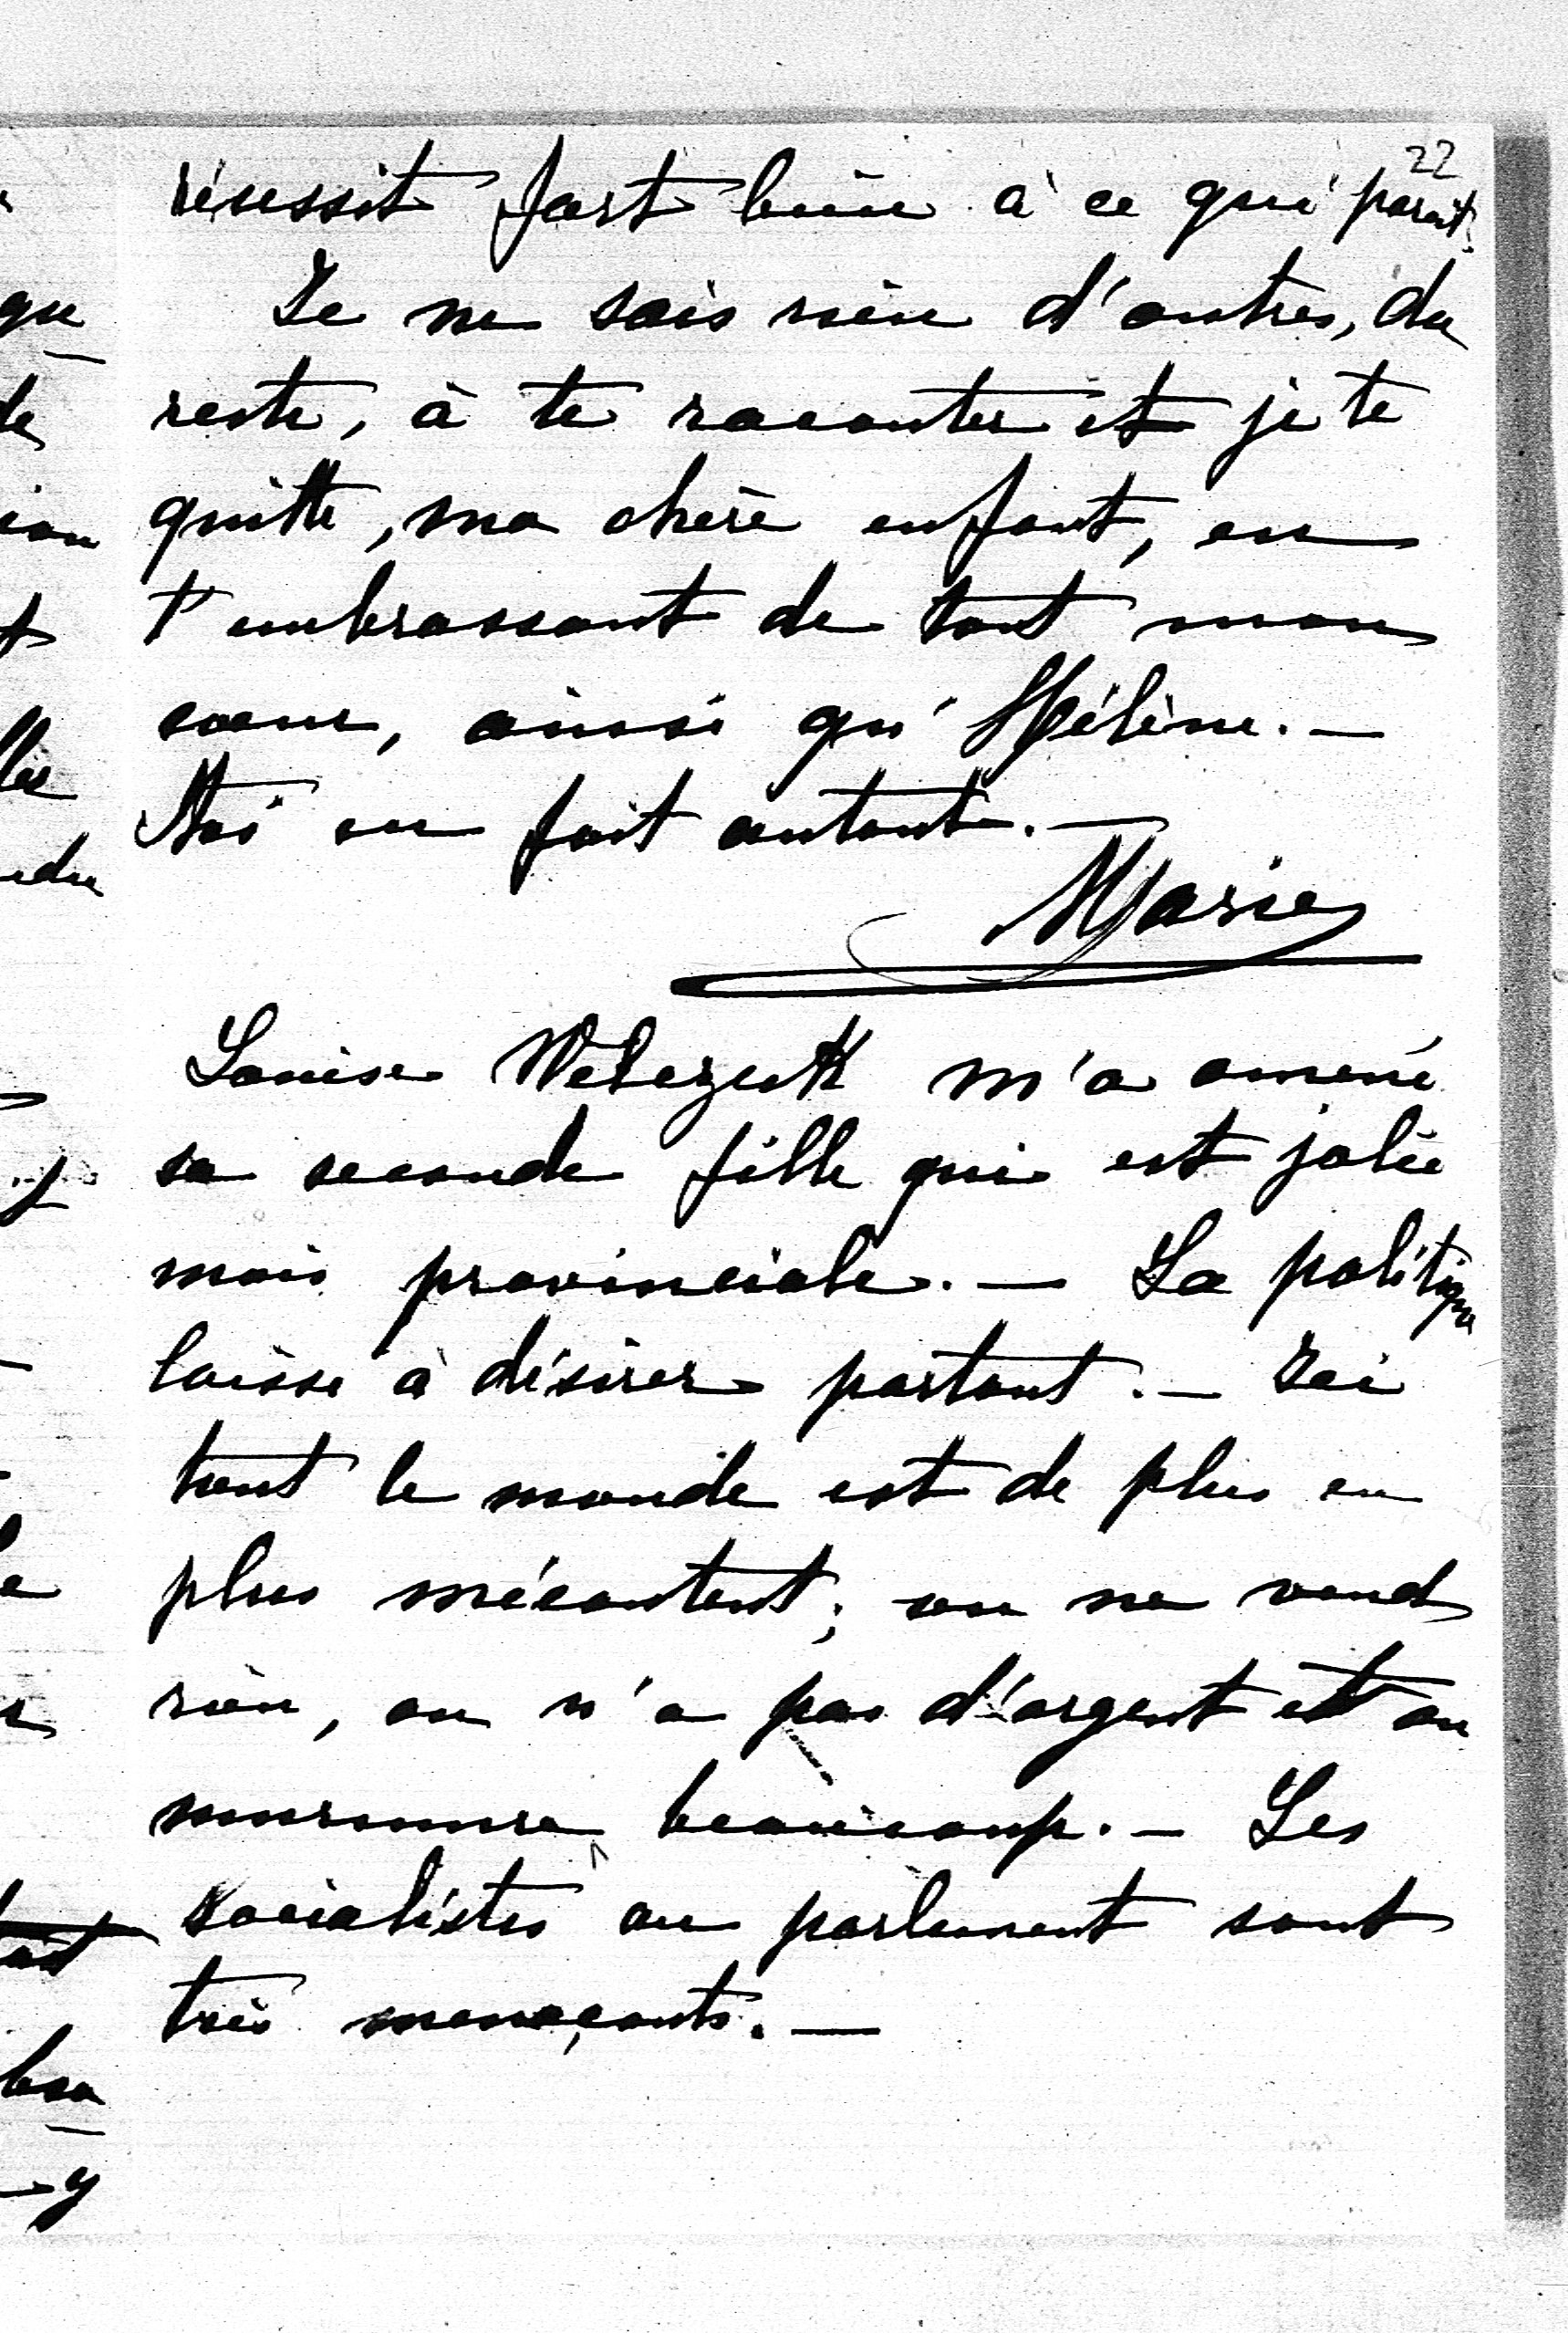 22
réussit fort bien à ce qui parait.
Je ne sais rien d'autres, du
reste, à te raconter et je te
quitte, ma chère enfant, en
t'embrassant de tout mon
coeur, ainsi qu'Hélène. —
en fait autant. —
Marie
Louise m'a amené
sa seconde fille qui est jolie
mais provinciale. — La politique
laisse à désirer partout. — Ici
tout le monde est de plus en
plus mécontent; on ne vend
rien, on n'a pas d'argent et on
murmure beaucoup. — Les
socialistes au parlement sont
très menaçants. —